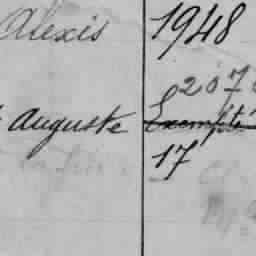 Alexis 1948
207
Auguste Exempté
17